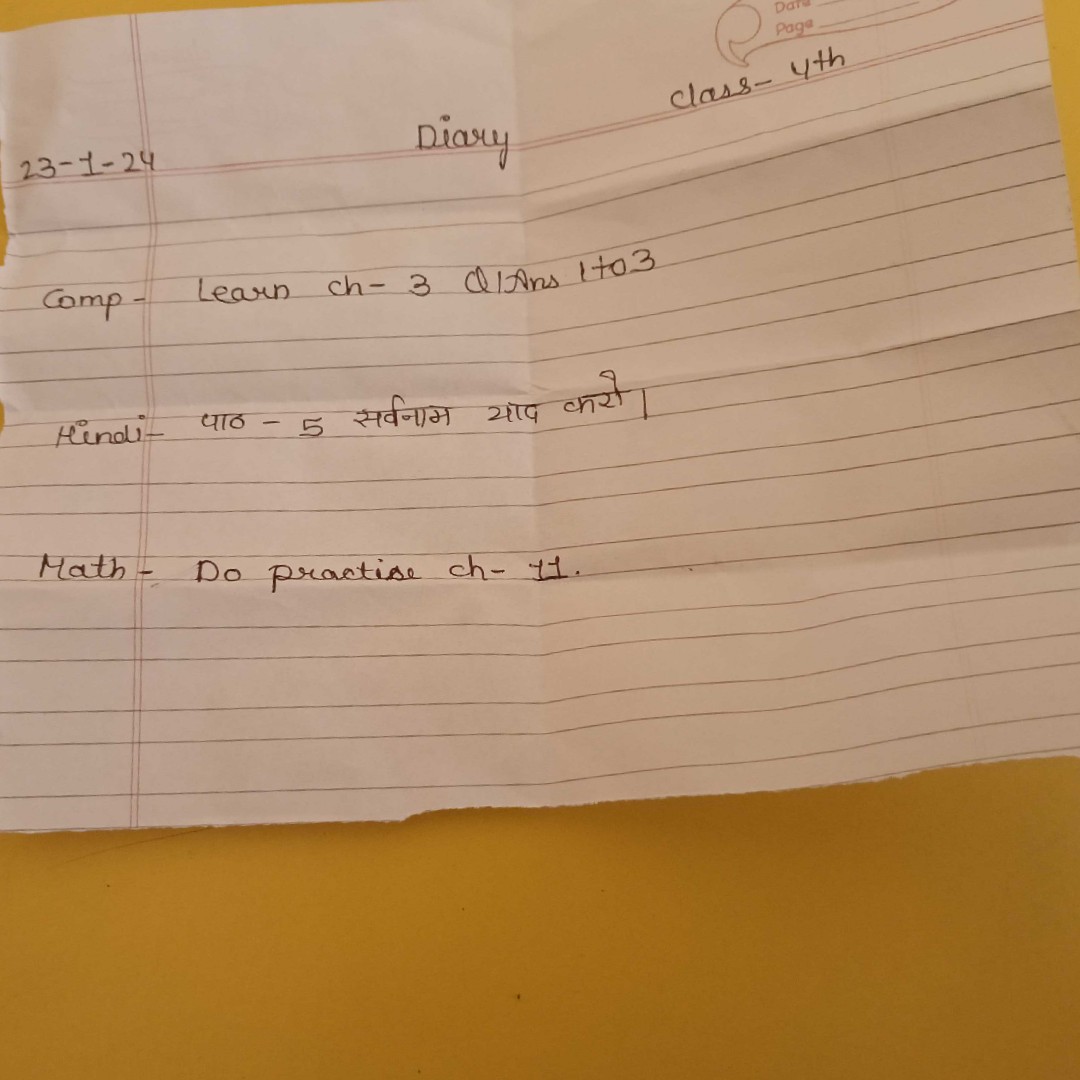 Date
Page
Class- 4th
Diary
23-1-24
Comp- Learn ch- 3 Q/Ans 1to3
Hindi- पाठ - 5 सर्वनाम याद करो।
Math- Do practise ch- 11.